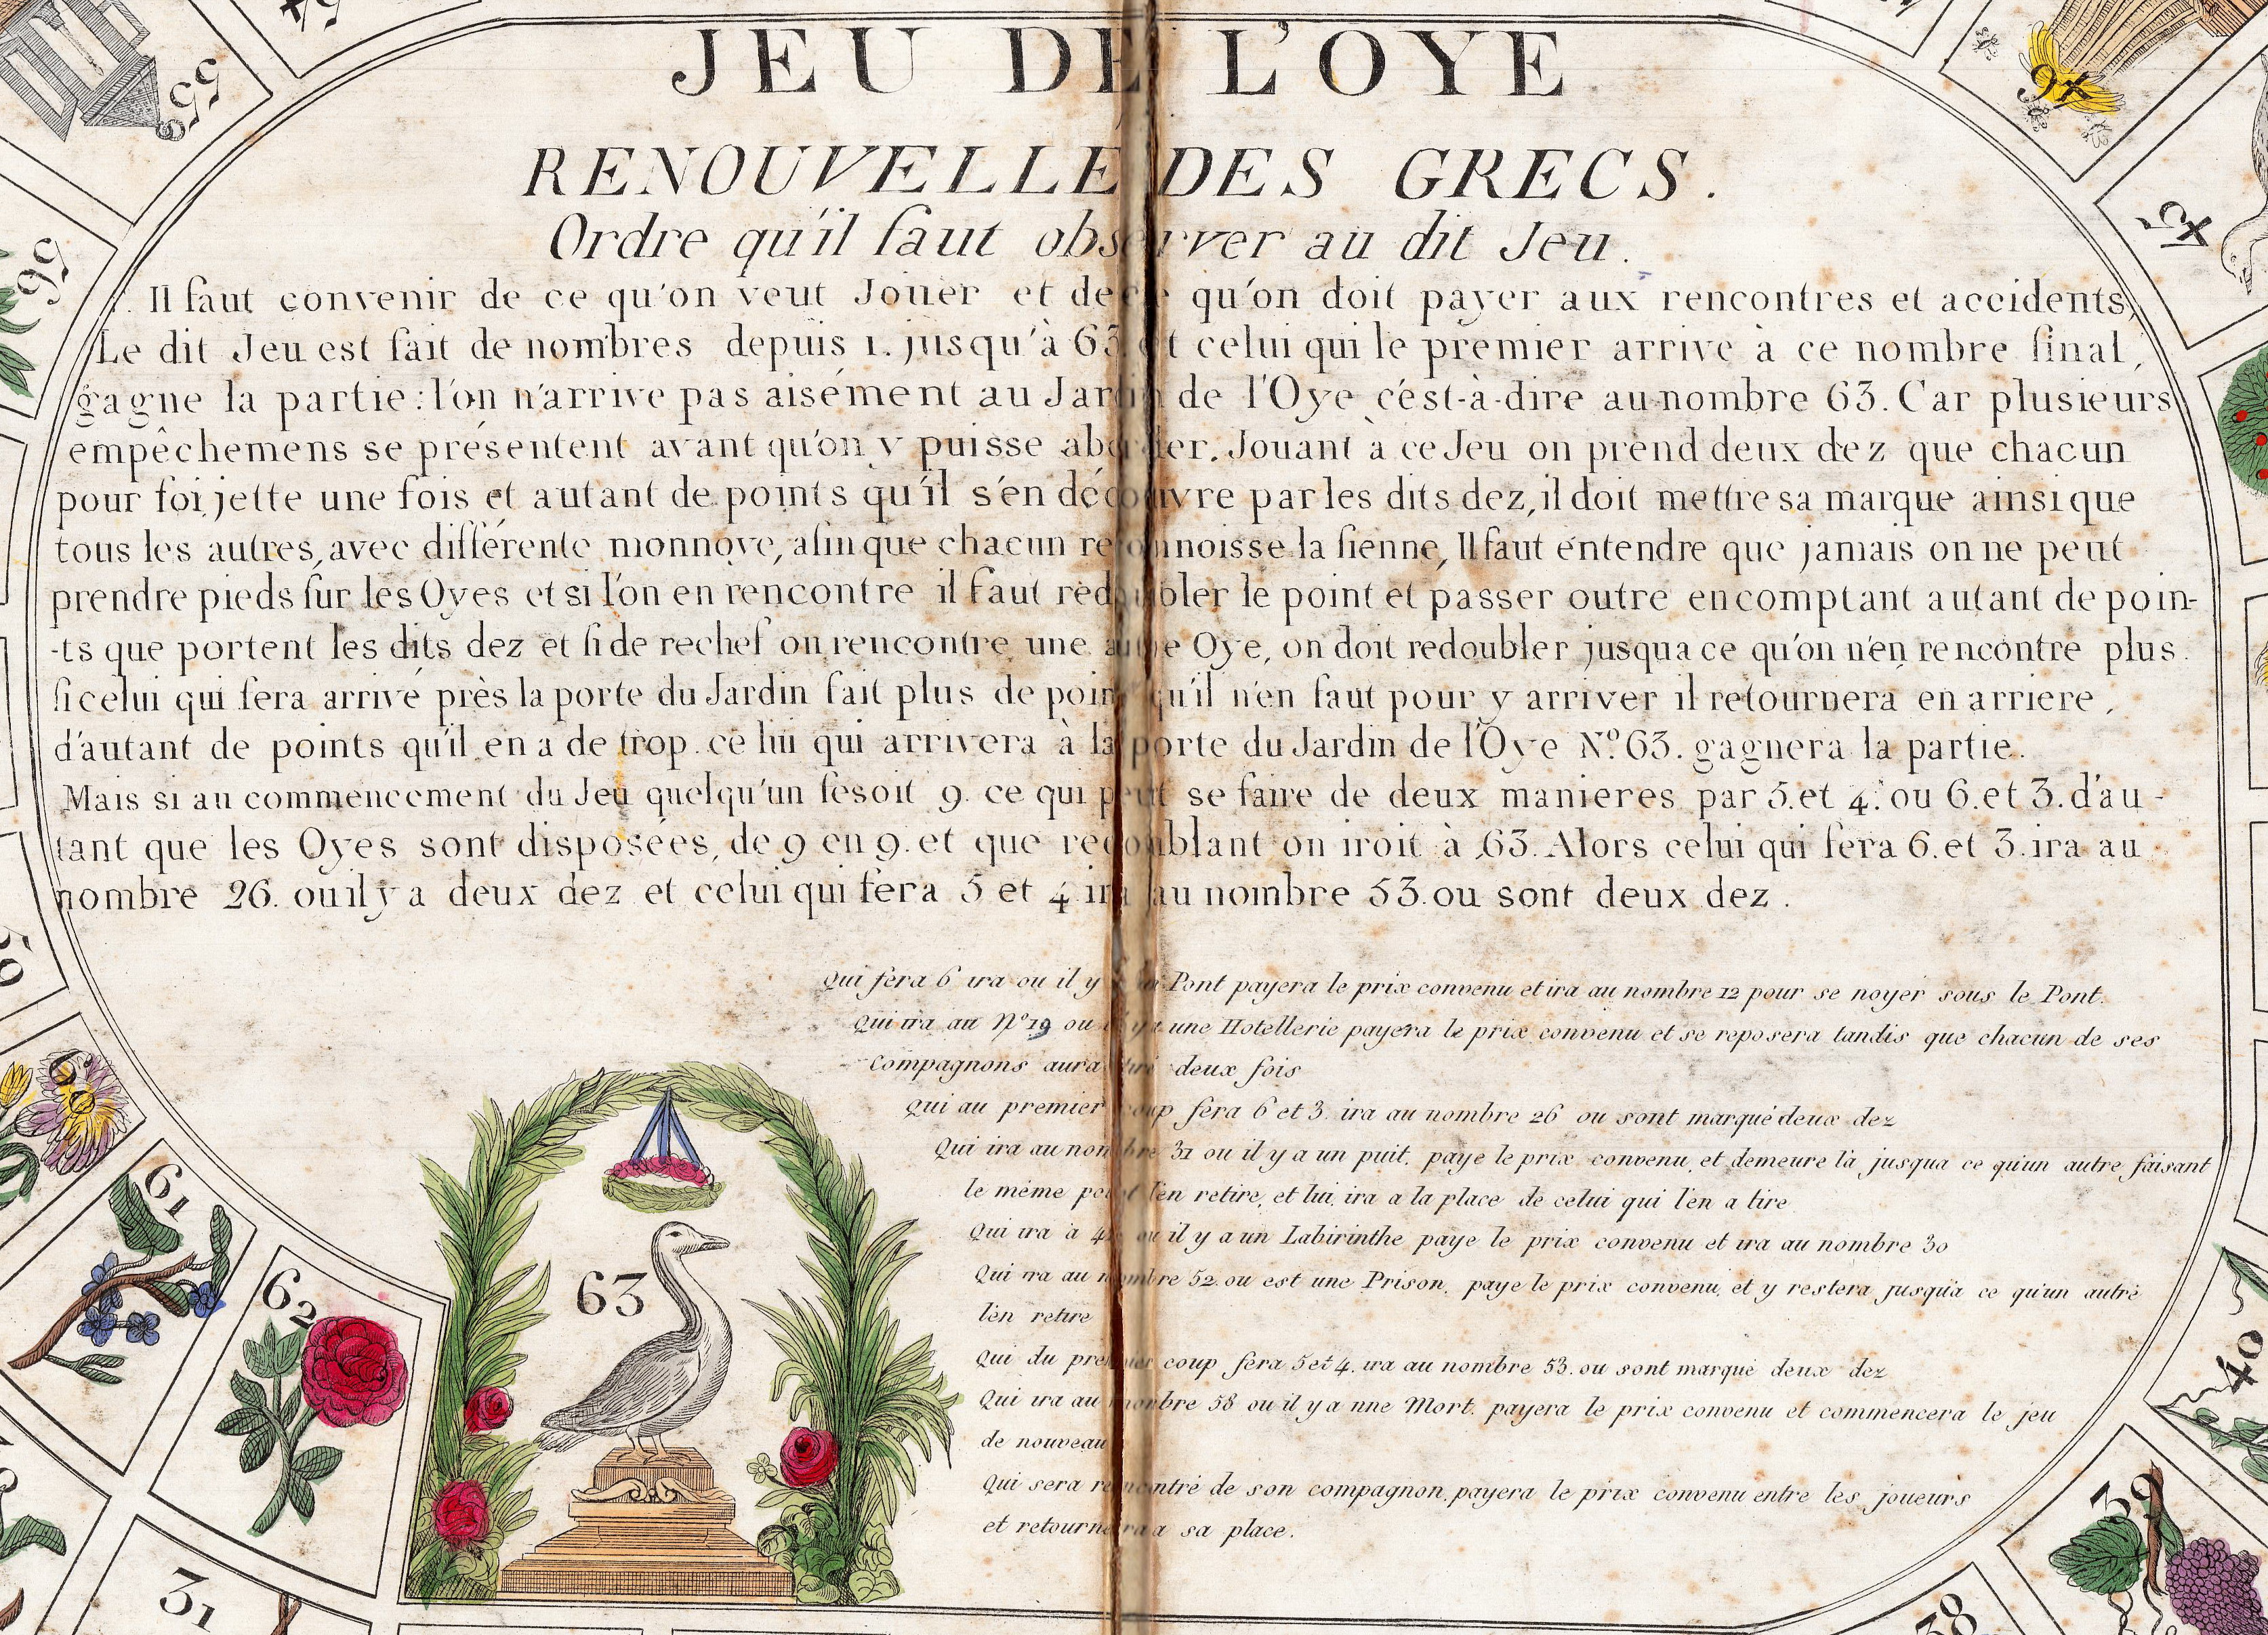 JEU DE L'OYE
RENOUVELLE DES GRECS.
Ordre qu'il faut observer au dit Jeu.
Il faut convenir de ce qu'on veut Jouer et de ce qu'on doit payer aux rencontres et accidents,
Le dit Jeu est fait de nombres depuis 1. jusqu'à 63. et celui qui le premier arrive à ce nombre final,
gagne la partie: l'on n'arrive pas aisément au Jardin de l'Oye c'est-à-dire au nombre 63. Car plusieurs
empêchemens se présentent avant qu'on y puisse aborder. Jouant à ce Jeu on prend deux dez que chacun
pour soi, jette une fois et autant de points qu'il s'en découvre par les dits dez, il doit mettre sa marque ainsi que
tous les autres, avec différente monnoye, afin que chacun reconnoisse la sienne, Il faut entendre que jamais on ne peut
prendre pieds sur les Oyes et si l'on en rencontre il faut redoubler le point et passer outre en comptant autant de poin-
-ts que portent les dits dez et si de rechef on rencontre une autre Oye, on doit redoubler jusqua ce qu'on n'en rencontre plus.
si celui qui sera arrivé près la porte du Jardin fait plus de points qu'il n'en faut pour y arriver il retournera en arriere,
d'autant de points qu'il en a de trop. ce lui qui arrivera à la porte du Jardin de l'Oye N.º 63. gagnera la partie.
Mais si au commencement du Jeu quelqu'un fesoit 9. ce qui peut se faire de deux manieres par 5. et 4. ou 6. et 3. d'au-
tant que les Oyes sont disposées, de 9 en 9. et que redoublant on iroit à 63. Alors celui qui fera 6. et 3. ira au
nombre 26. ou il y a deux dez et celui qui fera 5 et 4 ira au nombre 53. ou sont deux dez.
Qui fera 6 ira ou il y a le Pont payera le prix convenu et ira au nombre 12 pour se noyer sous le Pont.
Qui ira au Nº 19 ou il y a une Hotellerie payera le prix convenu et se reposera tandis que chacun de ses
Compagnons aura tiré deux fois
Qui au premier coup fera 6 et 3. ira au nombre 26 ou sont marqué deux dez
Qui ira au nombre 31 ou il y a un puit, paye le prix convenu, et demeure là jusqua ce qu'un autre faisant
le même point l'en retire, et lui ira a la place de celui qui l'en a tire
Qui ira à 42 ou il y a un Labirinthe paye le prix convenu et ira au nombre 30
Qui ira au nombre 52. ou est une Prison, paye le prix convenu, et y restera jusqu'a ce qu'un autre
l'en retire
Qui du premier coup fera 5 et 4. ira au nombre 53. ou sont marqué deux dez
Qui ira au nombre 58 ou il y a nne Mort, payera le prix convenu et commencera le jeu
de nouveau
Qui sera rencontré de son compagnon, payera le prix convenu entre les joueurs
et retournera a sa place.
63
55
56
60
61
62
31
46
45
40
39
38